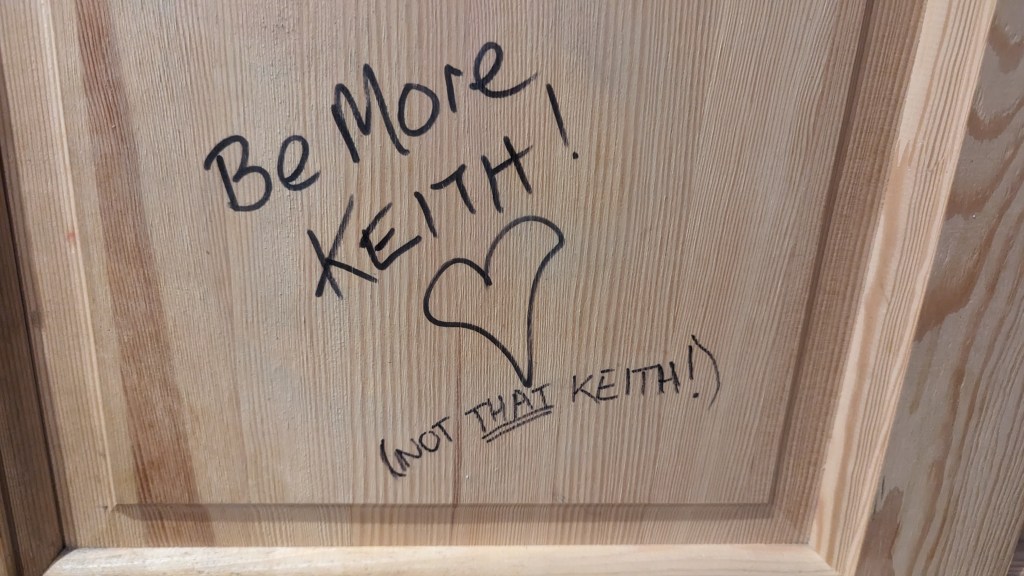 Be More
KEITH!
(NOT THAT KEITH!)